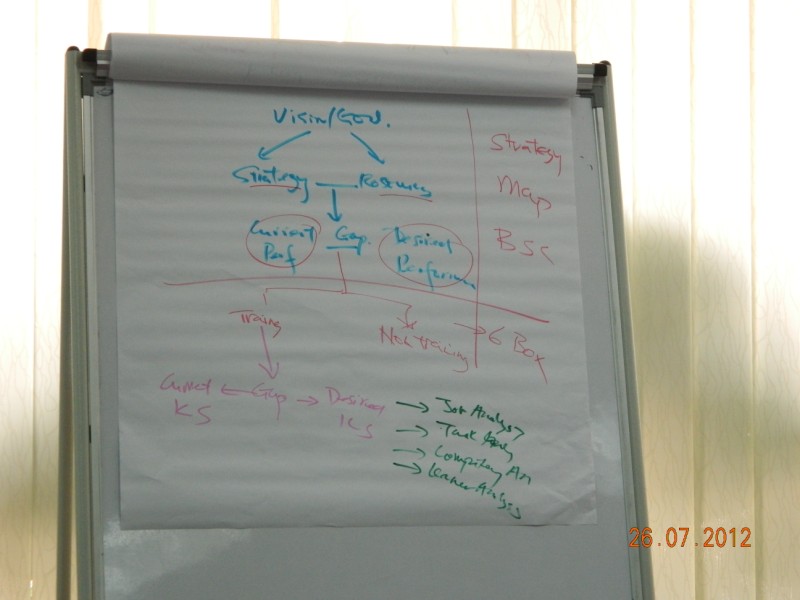 Vision/Goal.
Strategy
Strategy
Map
BSC
Current
Perf
Gap.
Desired
Performan
Training
Non training
6 Box
Current
KS
Gap
Desired
KS
Job Analysis
Task
Competency An
Learner Analysis
26.07.2012